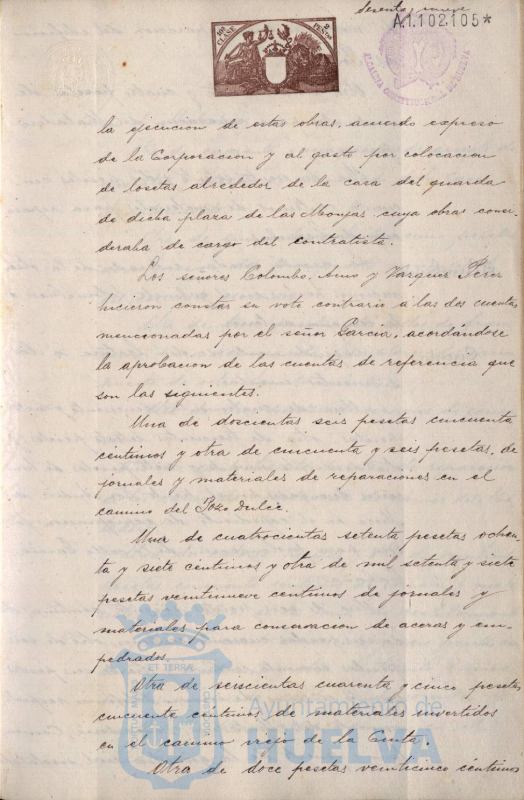 Sesenta y nueve
A.1.102.105*
10ª CLASE
2 PESETAS
ALCALDIA CONSTITUCIONAL DE HUELVA
la ejecucion de estas obras, acuerdo expreso
de la Corporacion y al gasto por colocacion
de losetas alrededor de la casa del guarda
de dicha plaza de las Monjas cuya obras consi-
deraba de cargo del contratista.
Los señores Colombo, Amo y Vazquez Perez
hicieron constar su voto contrario á las dos cuentas
mencionadas por el señor Garcia, acordándose
la aprobacion de las cuentas de referencia que
son las siguientes.
Una de doscientas seis pesetas cincuenta
centimos y otra de cincuenta y seis pesetas, de
jornales y materiales de reparaciones en el
camino del Pozo Dulce.
Una de cuatrocientas setenta pesetas ochen-
ta y siete centimos y otra de mil setenta y siete
pesetas veintinueve centimos de jornales y
materiales para conservacion de aceras y em-
pedrados.
Otra de seiscientas cuarenta y cinco pesetas
cincuenta centimos de materiales invertidos
en el camino viejo de la Cinta.
Otra de doce pesetas veinticinco centimos
ET TERRÆ
Ayuntamiento de
HUELVA